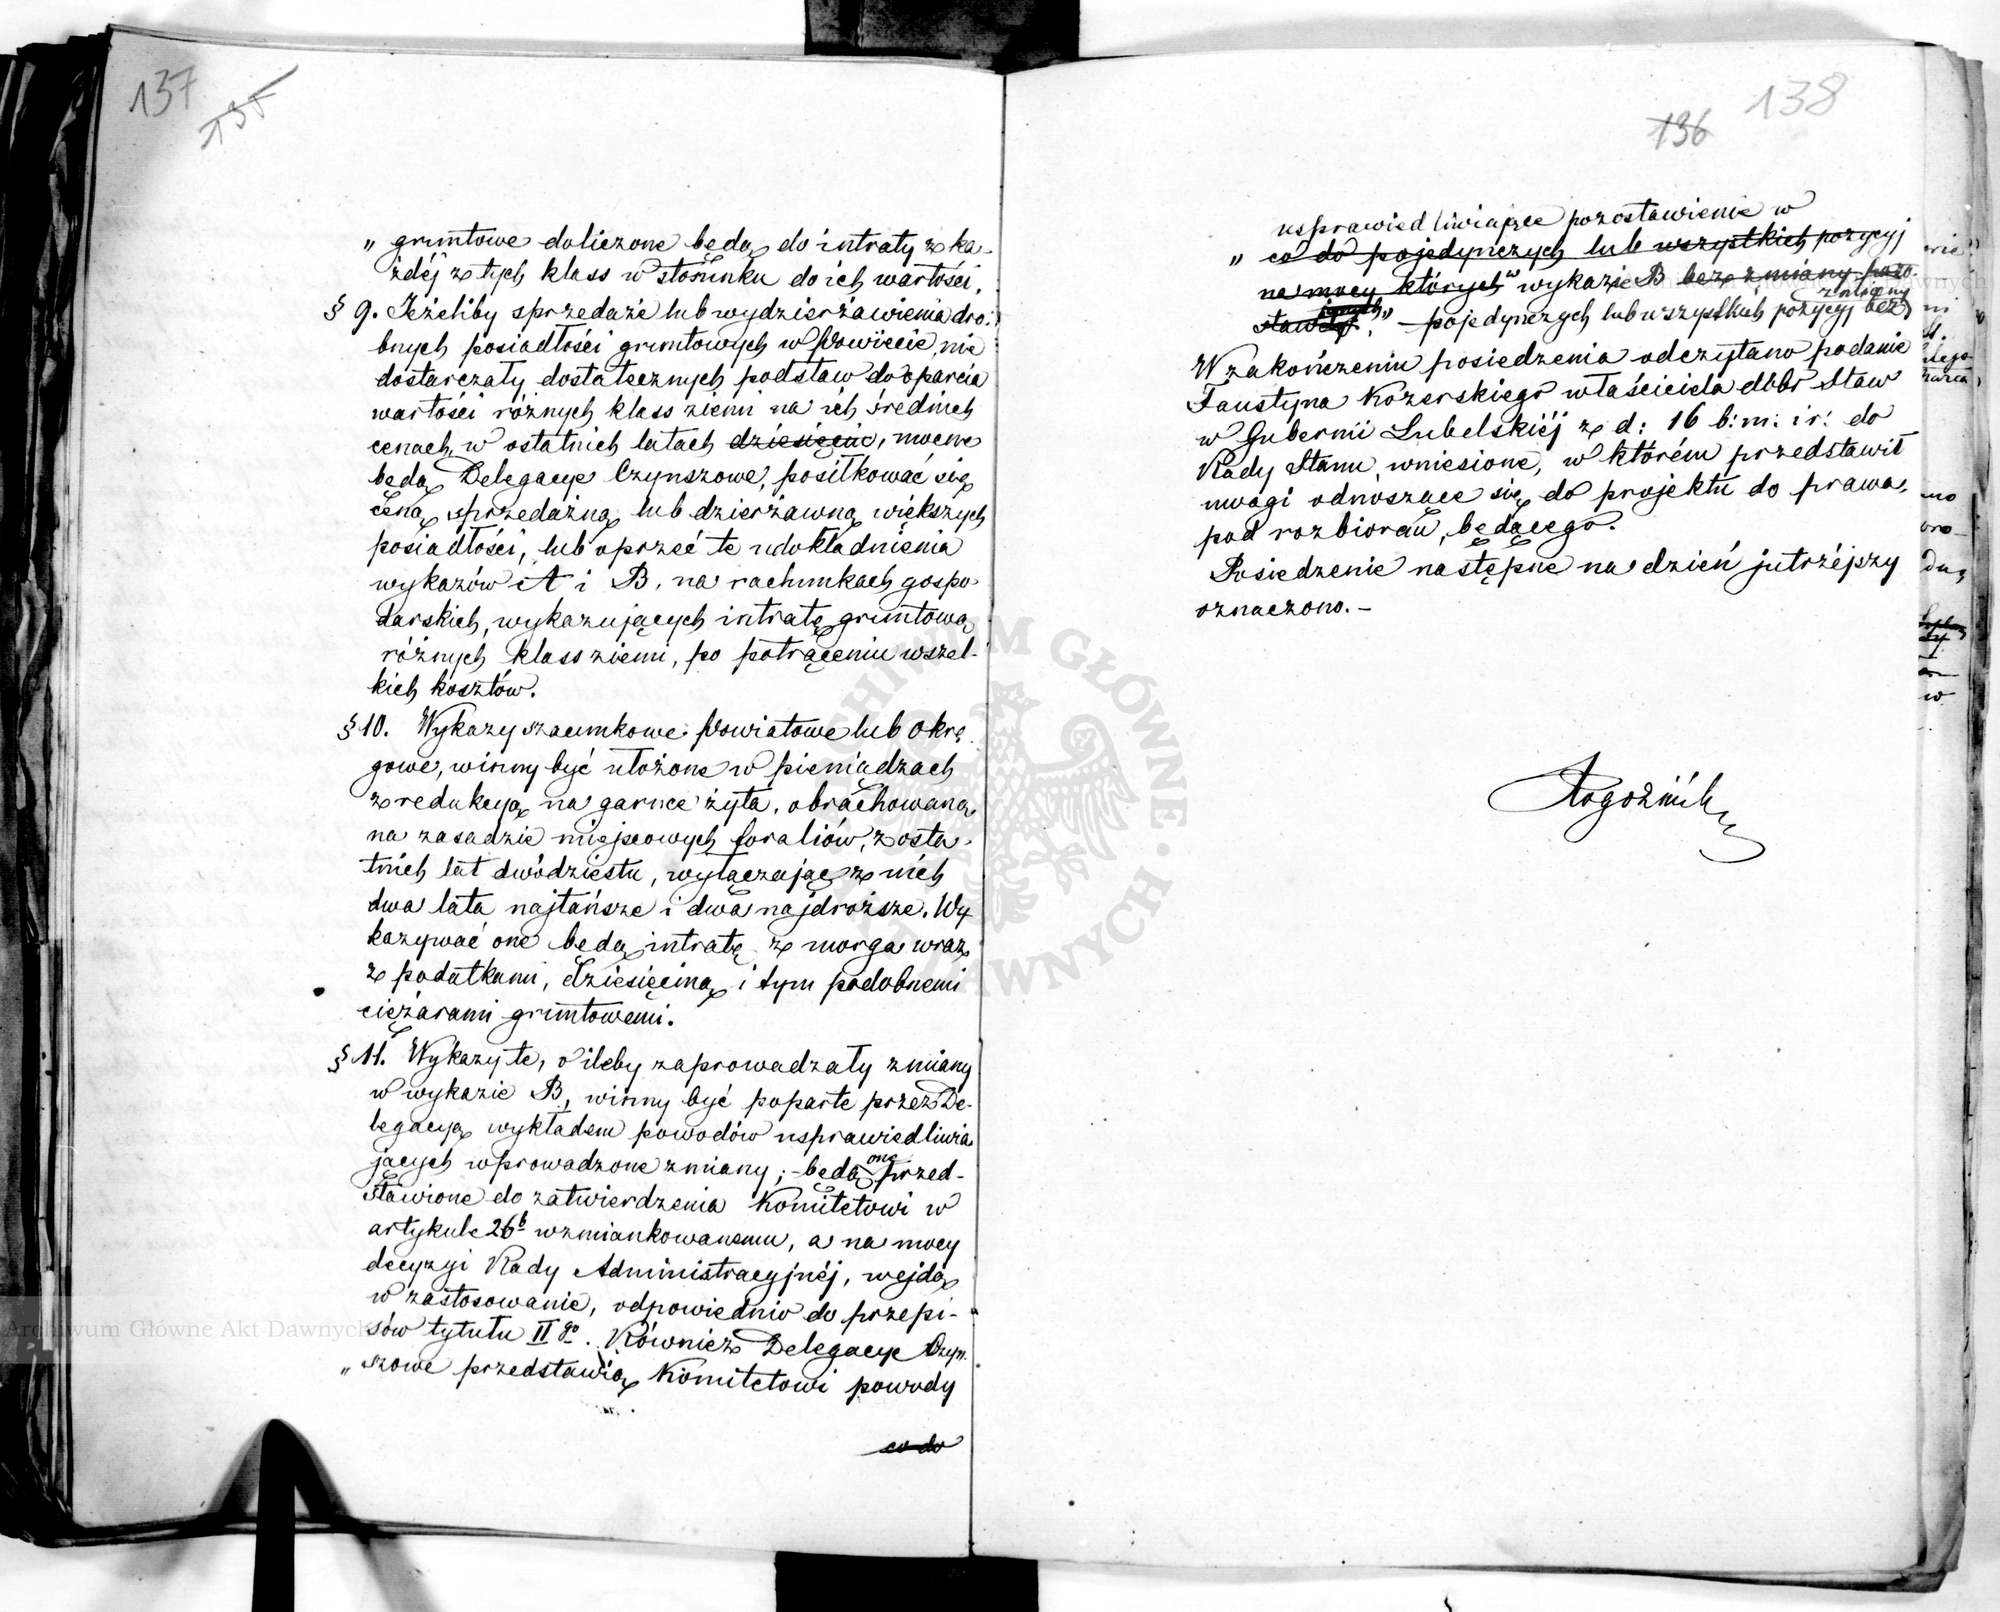 137
135
„ gruntowe doliczone będą do intraty z ka-
żdéj z tych klass w stosunku do ich wartości.
§ 9. Jeżeliby sprzedaże lub wydzierżawienia dro-
bnych posiadłości gruntowych w Powiecie, nie
dostarczały dostatecznych podstaw do oparcia
wartości różnych klass ziemi na ich średnich
cenach, w ostatnich latach dziesięciu, mocne
będą Delegacye Czynszowe, posiłkować się
ceną sprzedażną lub dzierżawną większych
posiadłości, lub oprzeć te udokładnienia
wykazów A i B, na rachunkach gospo-
darskich, wykazujących intratę gruntową
różnych klass ziemi, po potrąceniu wszel-
kich kosztów.
§ 10. Wykazy szacunkowe Powiatowe lub Okrę-
gowe, winny być ułożone w pieniądzach
z redukcyą na garnce żyta, obrachowaną
na zasadzie miejscowych foraliów, z osta-
tnich lat dwódziestu, wyłączając z nich
dwa lata najtańsze i dwa najdroższe. Wy-
kazywać one będą intratę z morga wraz
z podatkami, dziesięciną i tym podobnemi
ciężarami gruntowemi.
§ 11. Wykazy te, o ileby zaprowadzały zmiany
w wykazie B, winny być poparte przez De-
legacyą wykładem powodów usprawiedliwia-
jących wprowadzone zmiany; – będą one przed-
stawione do zatwierdzenia Komitetowi w
artykule 26b wzmiankowanemu, a na mocy
decyzyi Rady Administracyjnéj, wejdą
w zastosowanie, odpowiednio do przepi-
sów tytułu II go. Również Delegacye Czyn-
„ szowe przedstawią Komitetowi powody
co do
136 138
usprawiedliwiające pozostawienie w
„ co do pojedynczych lub wszystkich pozycyj
na mocy których w wykazie B bez zmiany pozo-
pojedynczych lub wszystkich pozycyj bez zmiany
W zakończeniu posiedzenia odczytano podanie
Faustyna Kozerskiego właściciela dóbr Staw
w Gubernii Lubelskiéj z d: 16 b: m: i r: do
Rady Stanu, wniesione, w którém przedstawił
uwagi odnoszące się do projektu do prawa,
pod rozbiorem, będącego.
Posiedzenie następne na dzień jutrzéjszy
oznaczono. –
Archiwum Główne Akt Dawnych